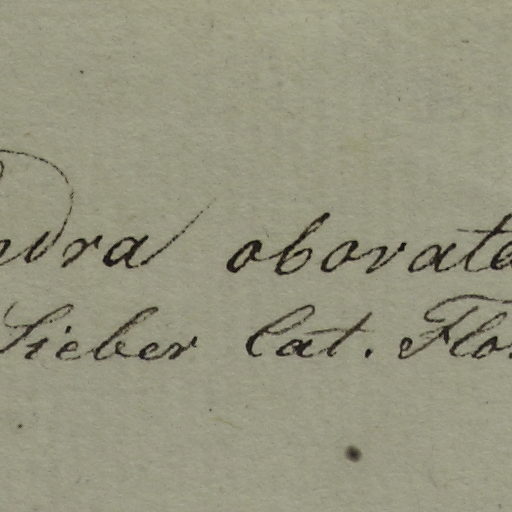 ndra obovata
Sieber Cat. Flo